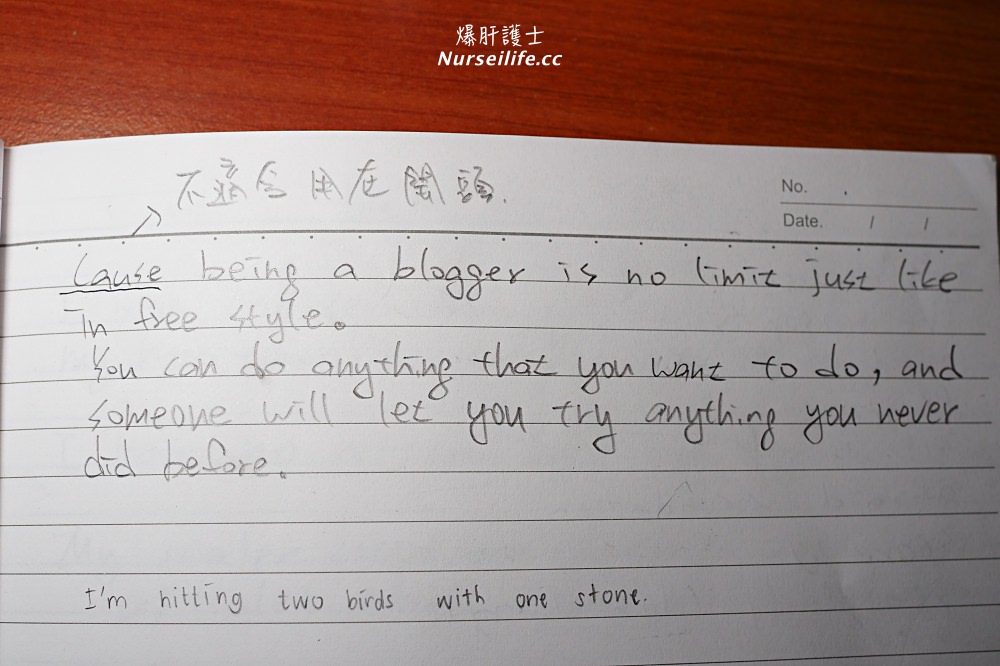 爆肝護士
Nurseilife.cc
不適合用在開頭.
No.
Date. / /
Cause being a blogger is no limit just like
in free style。
You can do anything that you want to do, and
someone will let you try anything you never
did before。
I'm hitting two birds with one stone.